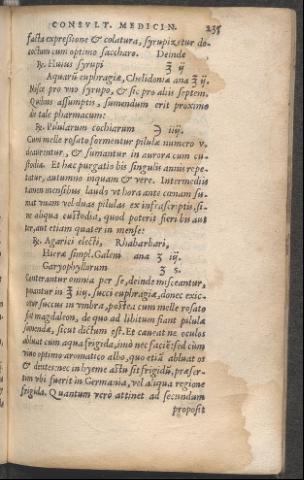 CONSVLT. MEDICIN. 235
facta expressione & colatura, syrupizetur do-
coctum cum optimo saccharo. Deinde
℞. Huius syrupi ℥ ij
Aquarũ euphragiæ, Chelidoniæ ana ℥ ij.
Rosæ pro vno syrupo, & sic pro aliis septem.
Quibus assumptis, sumendum erit proximo
die tale pharmacum:
℞. Pilularum cochiarum ℈ iiij.
Cum melle rosato formentur pilulæ numero v.
deaurentur, & sumantur in aurora cum cu-
stodia. Et hæc purgatio bis singulis annis repe-
tatur, autumno inquam & vere. Intermediis
tamen mensibus laudo vt hora ante cænam su-
mat vnam vel duas pilulas ex infrascriptis, si-
ne aliqua custodia, quod poterit fieri bis aut
ter, aut etiam quater in mense:
℞. Agarici electi, Rhabarbari,
Hieræ simpl. Galeni ana ℥ iij.
Garyophyllorum ℥ s.
Conterantur omnia per se, deinde misceantur,
ponantur in ℥ iiij. succi euphragiæ, donec exic-
cetur succus in vmbra, postea cum melle rosato
fiat magdaleon, de quo ad libitum fiant pilulæ
sumendæ, sicut dictum est. Et caueat ne oculos
abluat cum aqua frigida, imò nec faciẽ: sed cum
vino optimo aromatico albo, quo etiã abluat os
& dentes: nec in hyeme actu sit frigidũ, præser-
tim vbi fuerit in Germania, vel aliqua regione
frigida. Quantum verò attinet ad secundum
proposit